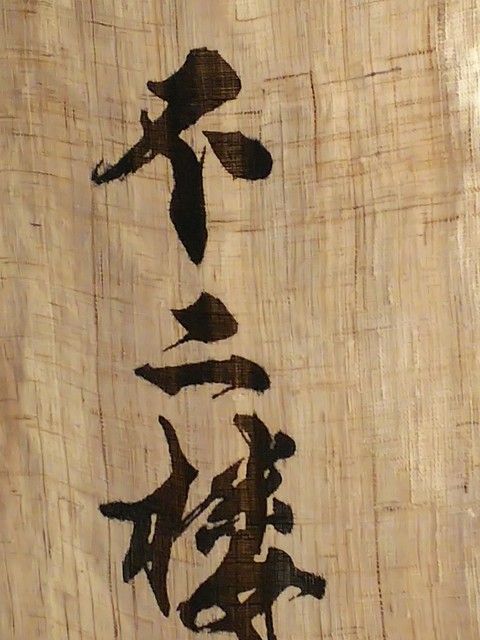 不二楼